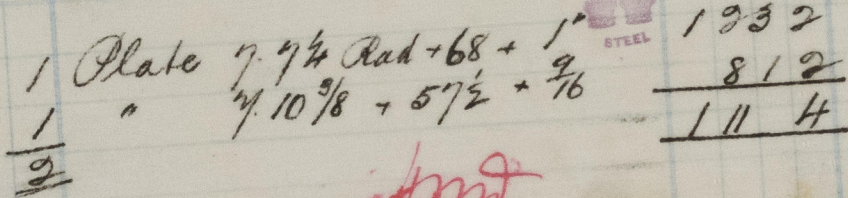 1 Plate 7.7¼ Rad + 68 + 1" STEEL 1 2 3 2
1 " 7.10 3/8 + 57½ + 9/16 8 1 2
2 1 11 4